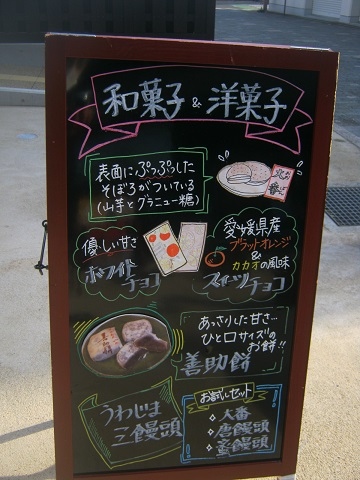 和菓子 & 洋菓子
表面にぷっぷした
そぼろがついている
(山芋とグラニュー糖)
優しい甘さ
ホワイト
チョコ
愛媛県産
ブラッドオレンジ
&
カカオの風味
スイーツチョコ
あっさりした甘さ…
ひと口サイズの
お餅!!
善助餅
善助餅
うわじま
三饅頭
お試しセット
大番
唐饅頭
蜜饅頭